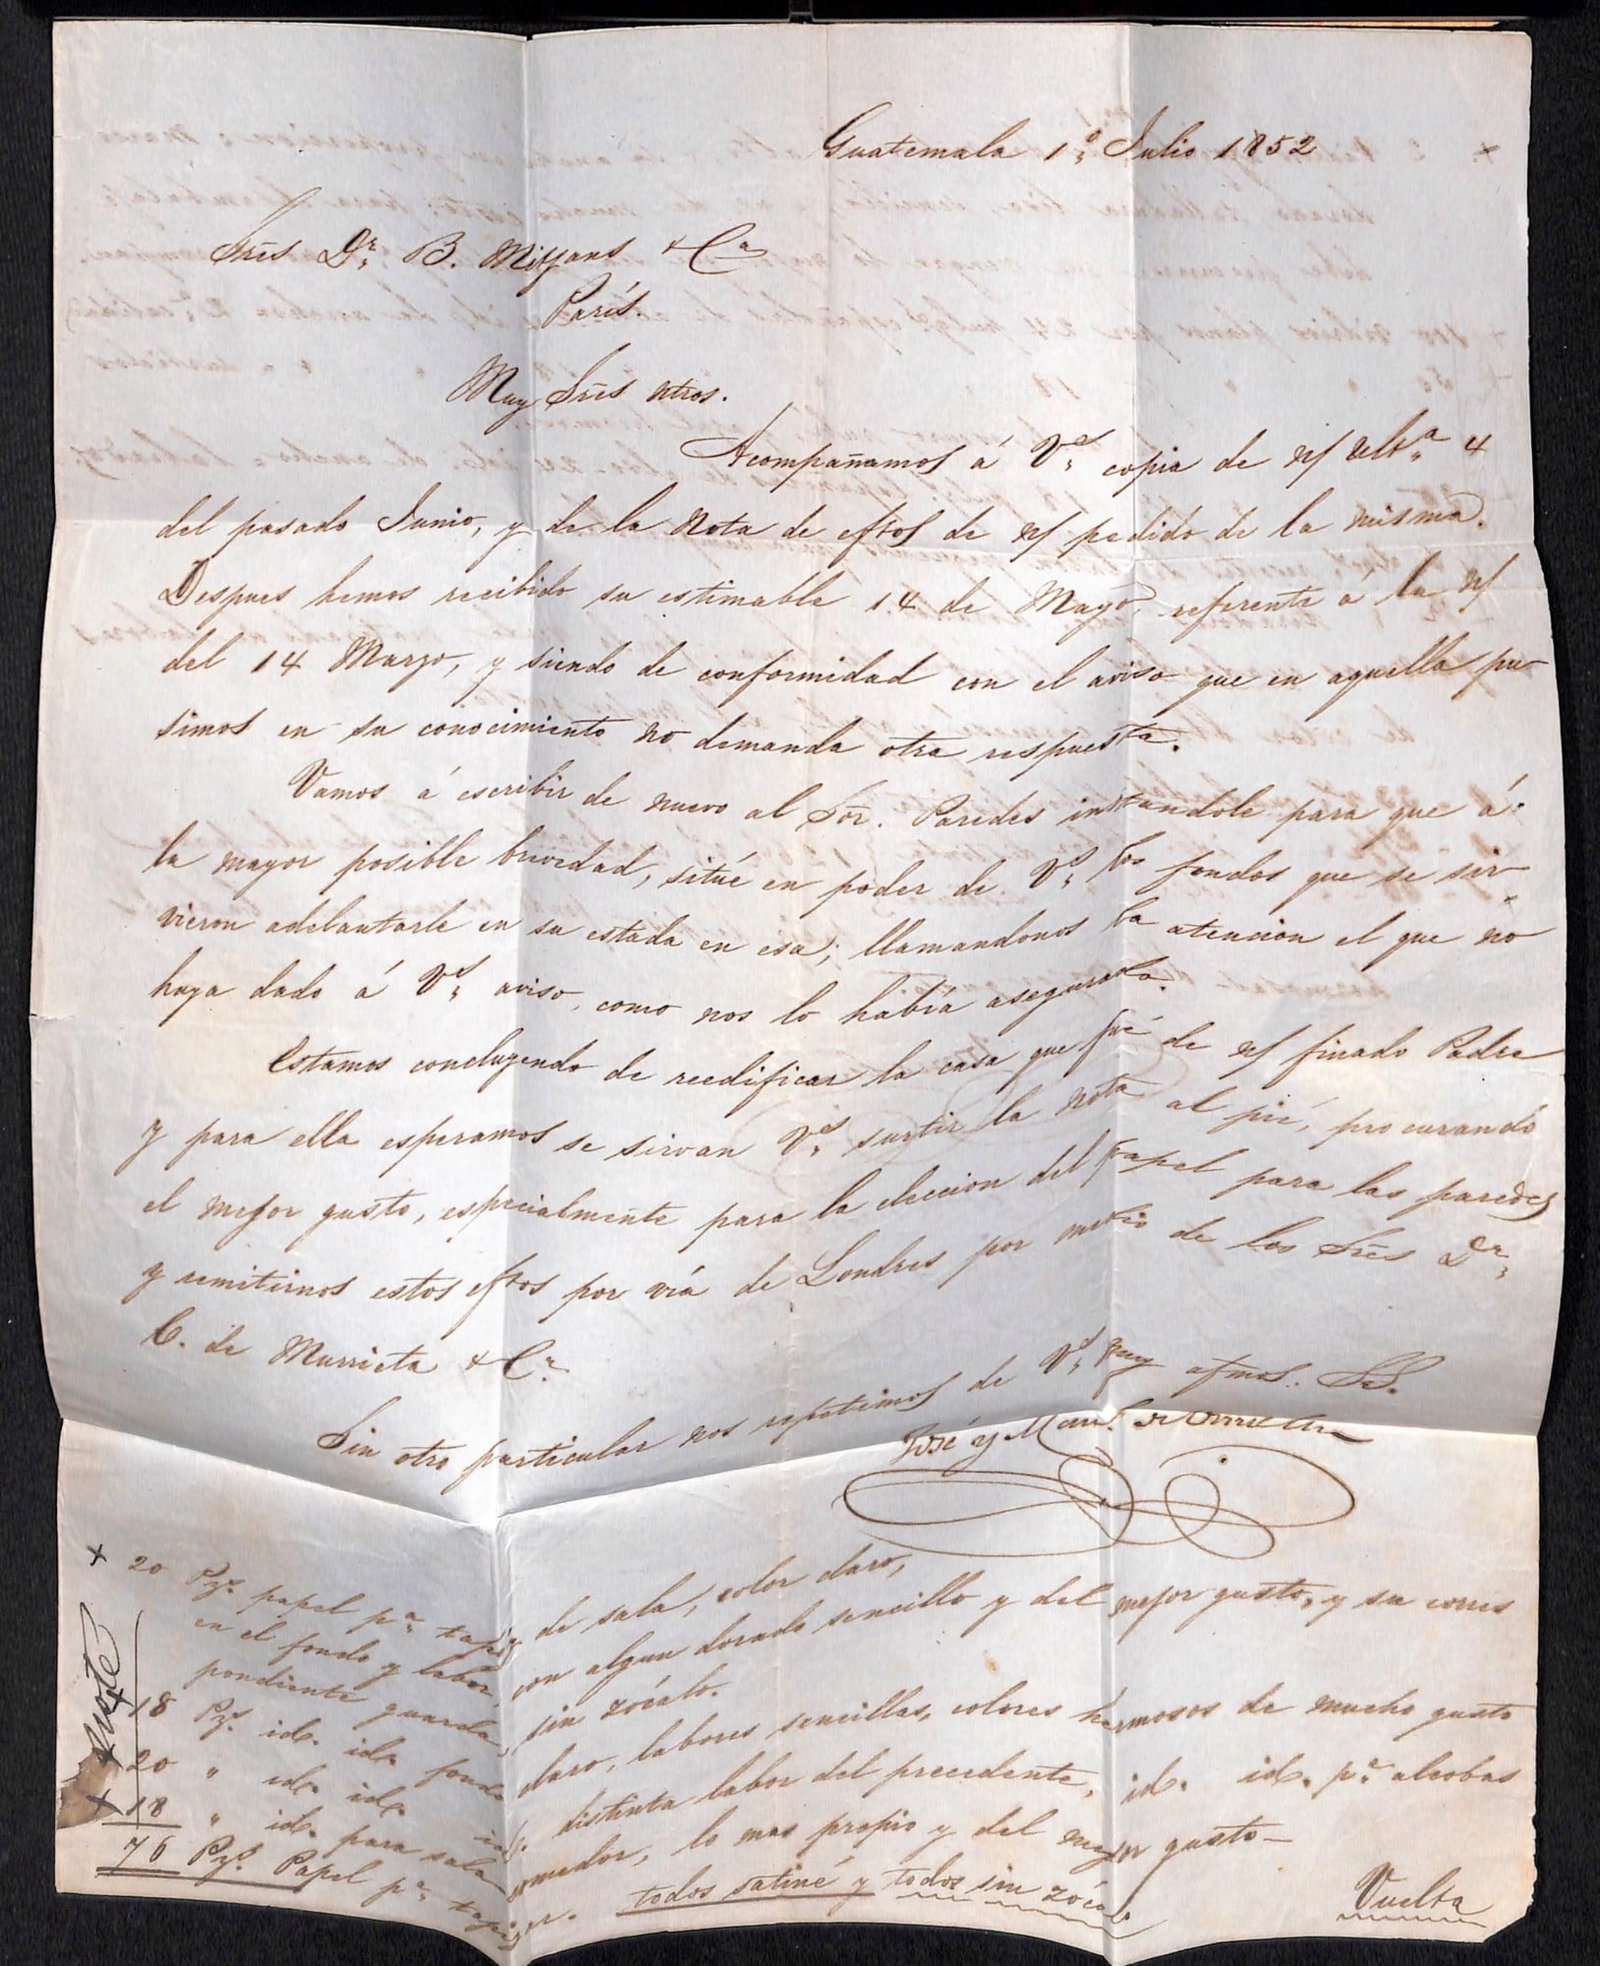 Guatemala 1º Julio 1852
Sres Dn. B. Mitjans & Ca
París.
Muy Sres ntros.
Acompañamos á Vs. copia de n/ ulta. 4
del pasado Junio, y de la Nota de eftos de n/ pedido de la misma.
Despues hemos recibido su estimable 14 de Mayo, referente á la n/
del 14 Marzo, y siendo de conformidad con el aviso que en aquella pu-
simos en su conocimiento no demanda otra respuesta.
Vamos á escribir de nuevo al Sor. Paredes instandole para que á
la mayor posible brevedad, sitúe en poder de Vs. los fondos que se sir-
vieron adelantarle en su estada en esa; llamandonos la atencion el que no
haya dado á Vs. aviso, como nos lo había asegurado.
Estamos concluyendo de reedificar la casa que fué de n/ finado Padre
y para ella esperamos se sirvan Vs. surtir la nota al pié, procurando
el mejor gusto, especialmente para la eleccion del papel para las paredes
y remitirnos estos eftos por vía de Londres por medio de los Sres Dn.
C. de Murrieta & Ca.
Sin otro particular nos repetimos de Vs. muy afmos. SS.
José y Man.
+ 20 Pzs. papel pa. tapiz de sala, color claro,
en el fondo y labor, con algun dorado sencillo y del mejor gusto, y su corres
pondiente guarda, sin zócalo.
18 Pzs. id. id. fondo claro, labores sencillas, colores hermosos de mucho gusto
20 " id. id. id. distinta labor del precedente, id. id. pa. alcobas
+ 18 " id. para sala comedor, lo mas propio y del mejor gusto—
76 Pzs. Papel pa. tapizar. todos satiné y todos sin zócalo
Vuelta